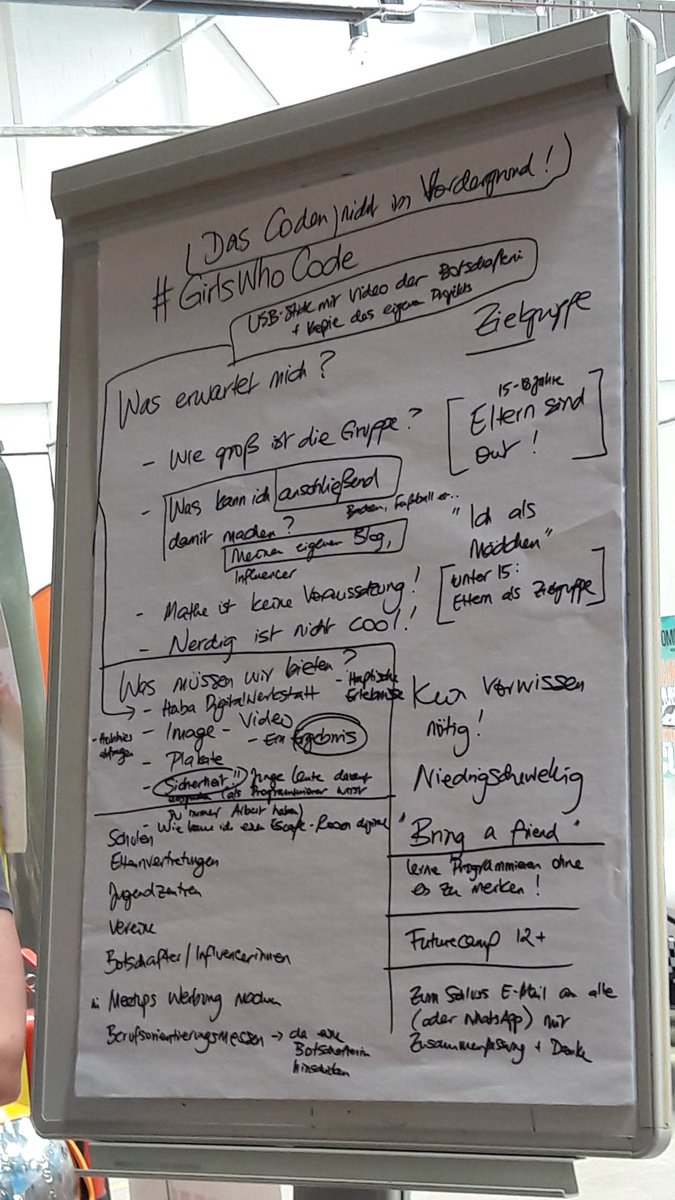 (Das Coden) nicht im Vordergrund!
#GirlsWhoCode
USB-Stick mit Video der Botschafterin
+ Kopie des eigenen Projekts
Zielgruppe
Was erwartet mich?
- Wie groß ist die Gruppe?
- Was kann ich anschließend
damit machen?
Backen, Fußball
Meinen eigenen Blog,
Influencer
- Mathe ist keine Voraussetzung!
- Nerdig ist nicht cool!
15-18 Jahre
[Eltern sind
out!]
"Ich als
Mädchen"
[unter 15:
Eltern als Zielgruppe]
Was müssen wir bieten?
- Haba Digitalwerkstatt
- Haptische
Erlebnisse
- Image-Video
- Ein Ergebnis
- Plakate
- Sicherheit!! Junge Leute
(als Programmierer wirst
Du immer Arbeit haben)
- Wie kann ich einen Escape-Room digital
Kein Vorwissen
nötig!
Niedrigschwellig
"Bring a friend"
Lerne Programmieren ohne
es zu merken!
Futurecamp 12+
Zum Schluss E-Mail an alle
(oder WhatsApp) mit
Zusammenfassung + Danke
Schulen
Elternvertretungen
Jugendzentren
Vereine
Botschafter/Influencerinnen
in Meetups Werbung machen
Berufsorientierungsmessen → da eine
Botschafterin
hinschicken